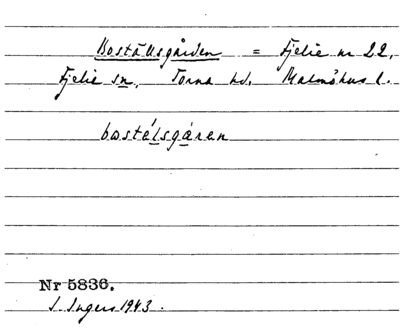 Boställsgården = Fjelie nr 22,
Fjelie sn, Torna hd, Malmöhus l.
bostélsgåren
Nr 5836.
I. Ingers 1943.